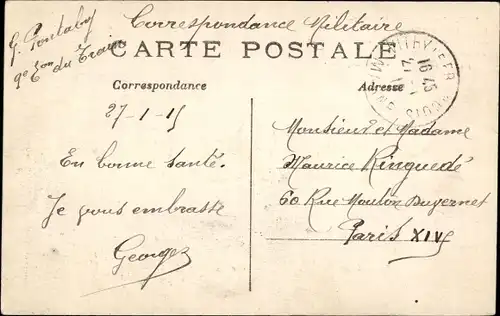 Correspondance Militaire
G. Pontaby
9e Eon du Train
CARTE POSTALE
Correspondance
Adresse
27-1-15
En bonne santé.
Je vous embrasse
Georges
Monsieur et Madame
Maurice Ringuedé
60 Rue Moulin Duvernet
Paris XIV
16 45
27-1